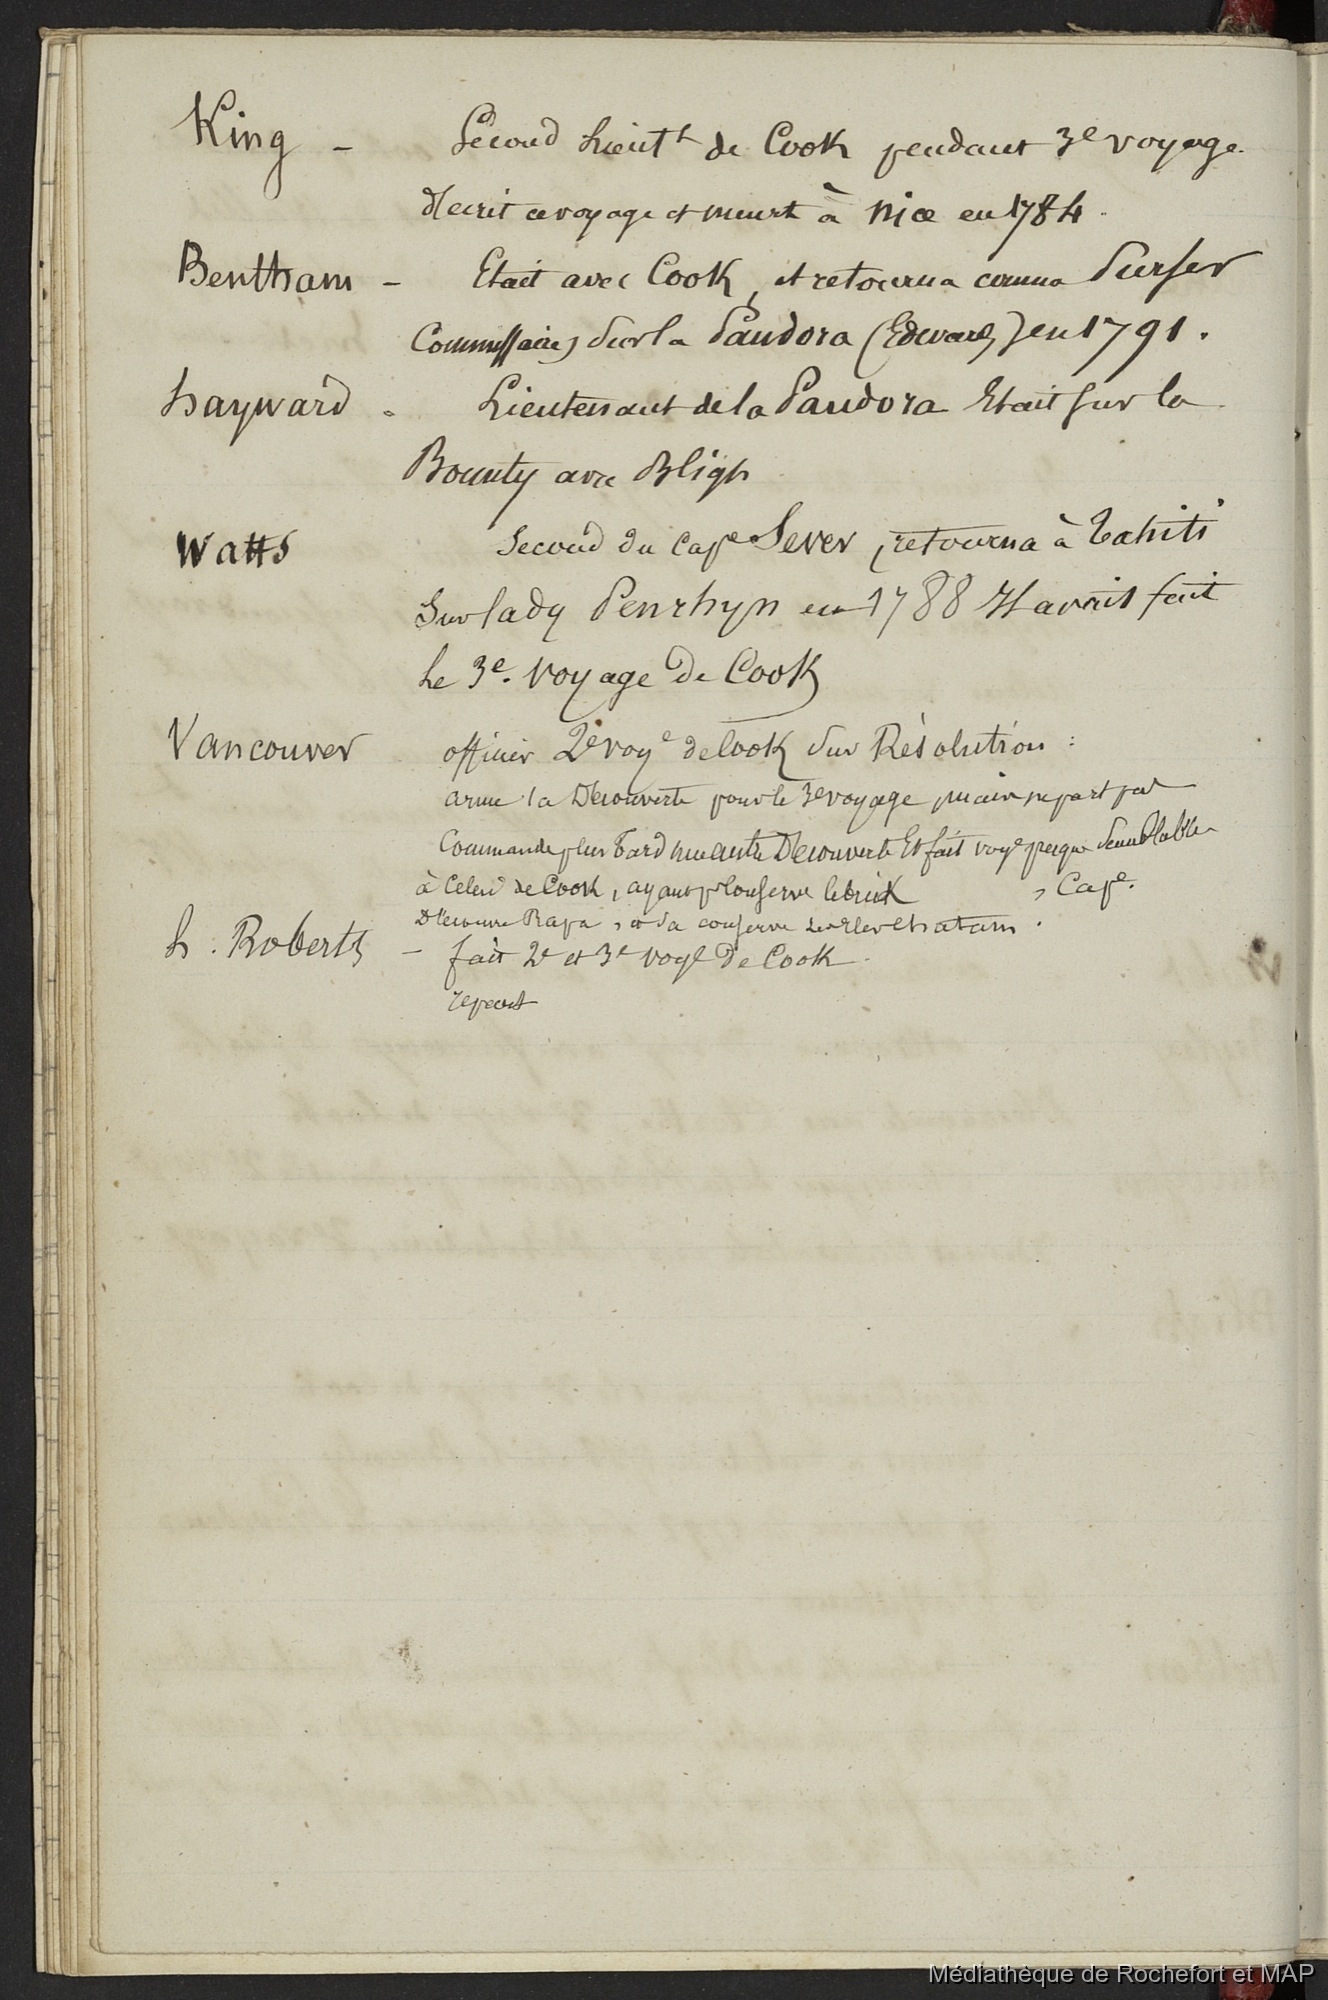 King – Second Lieut^t de Cook pendant 3e voyage.
Il ecrit ce voyage et meurt à Nice en 1784.
Bentham – Etait avec Cook, et retourna comme Purser
Commissaire) sur la Pandora (Edward) en 1791.
hayward - Lieutenant de la Pandora Etait sur la
Bounty avec Bligh
Watts Second du Cape Sever, retourna à Tahiti
Sur lady Penrhyn en 1788 Il avait fait
le 3e. voyage de Cook
Vancouver officier 2e voye de Cook sur Résolution :
arme la Découverte pour le 3e voyage, mais ne part pas
Commande plus tard une autre Découverte et fait voye presque semblable
à celui de Cook, ayant pr conserve le brick , Cape.
Découvre Rapa, et sa conserve chatam.
h. Roberts – fait 2e et 3e voye de Cook.
repart
Médiathèque de Rochefort et MAP